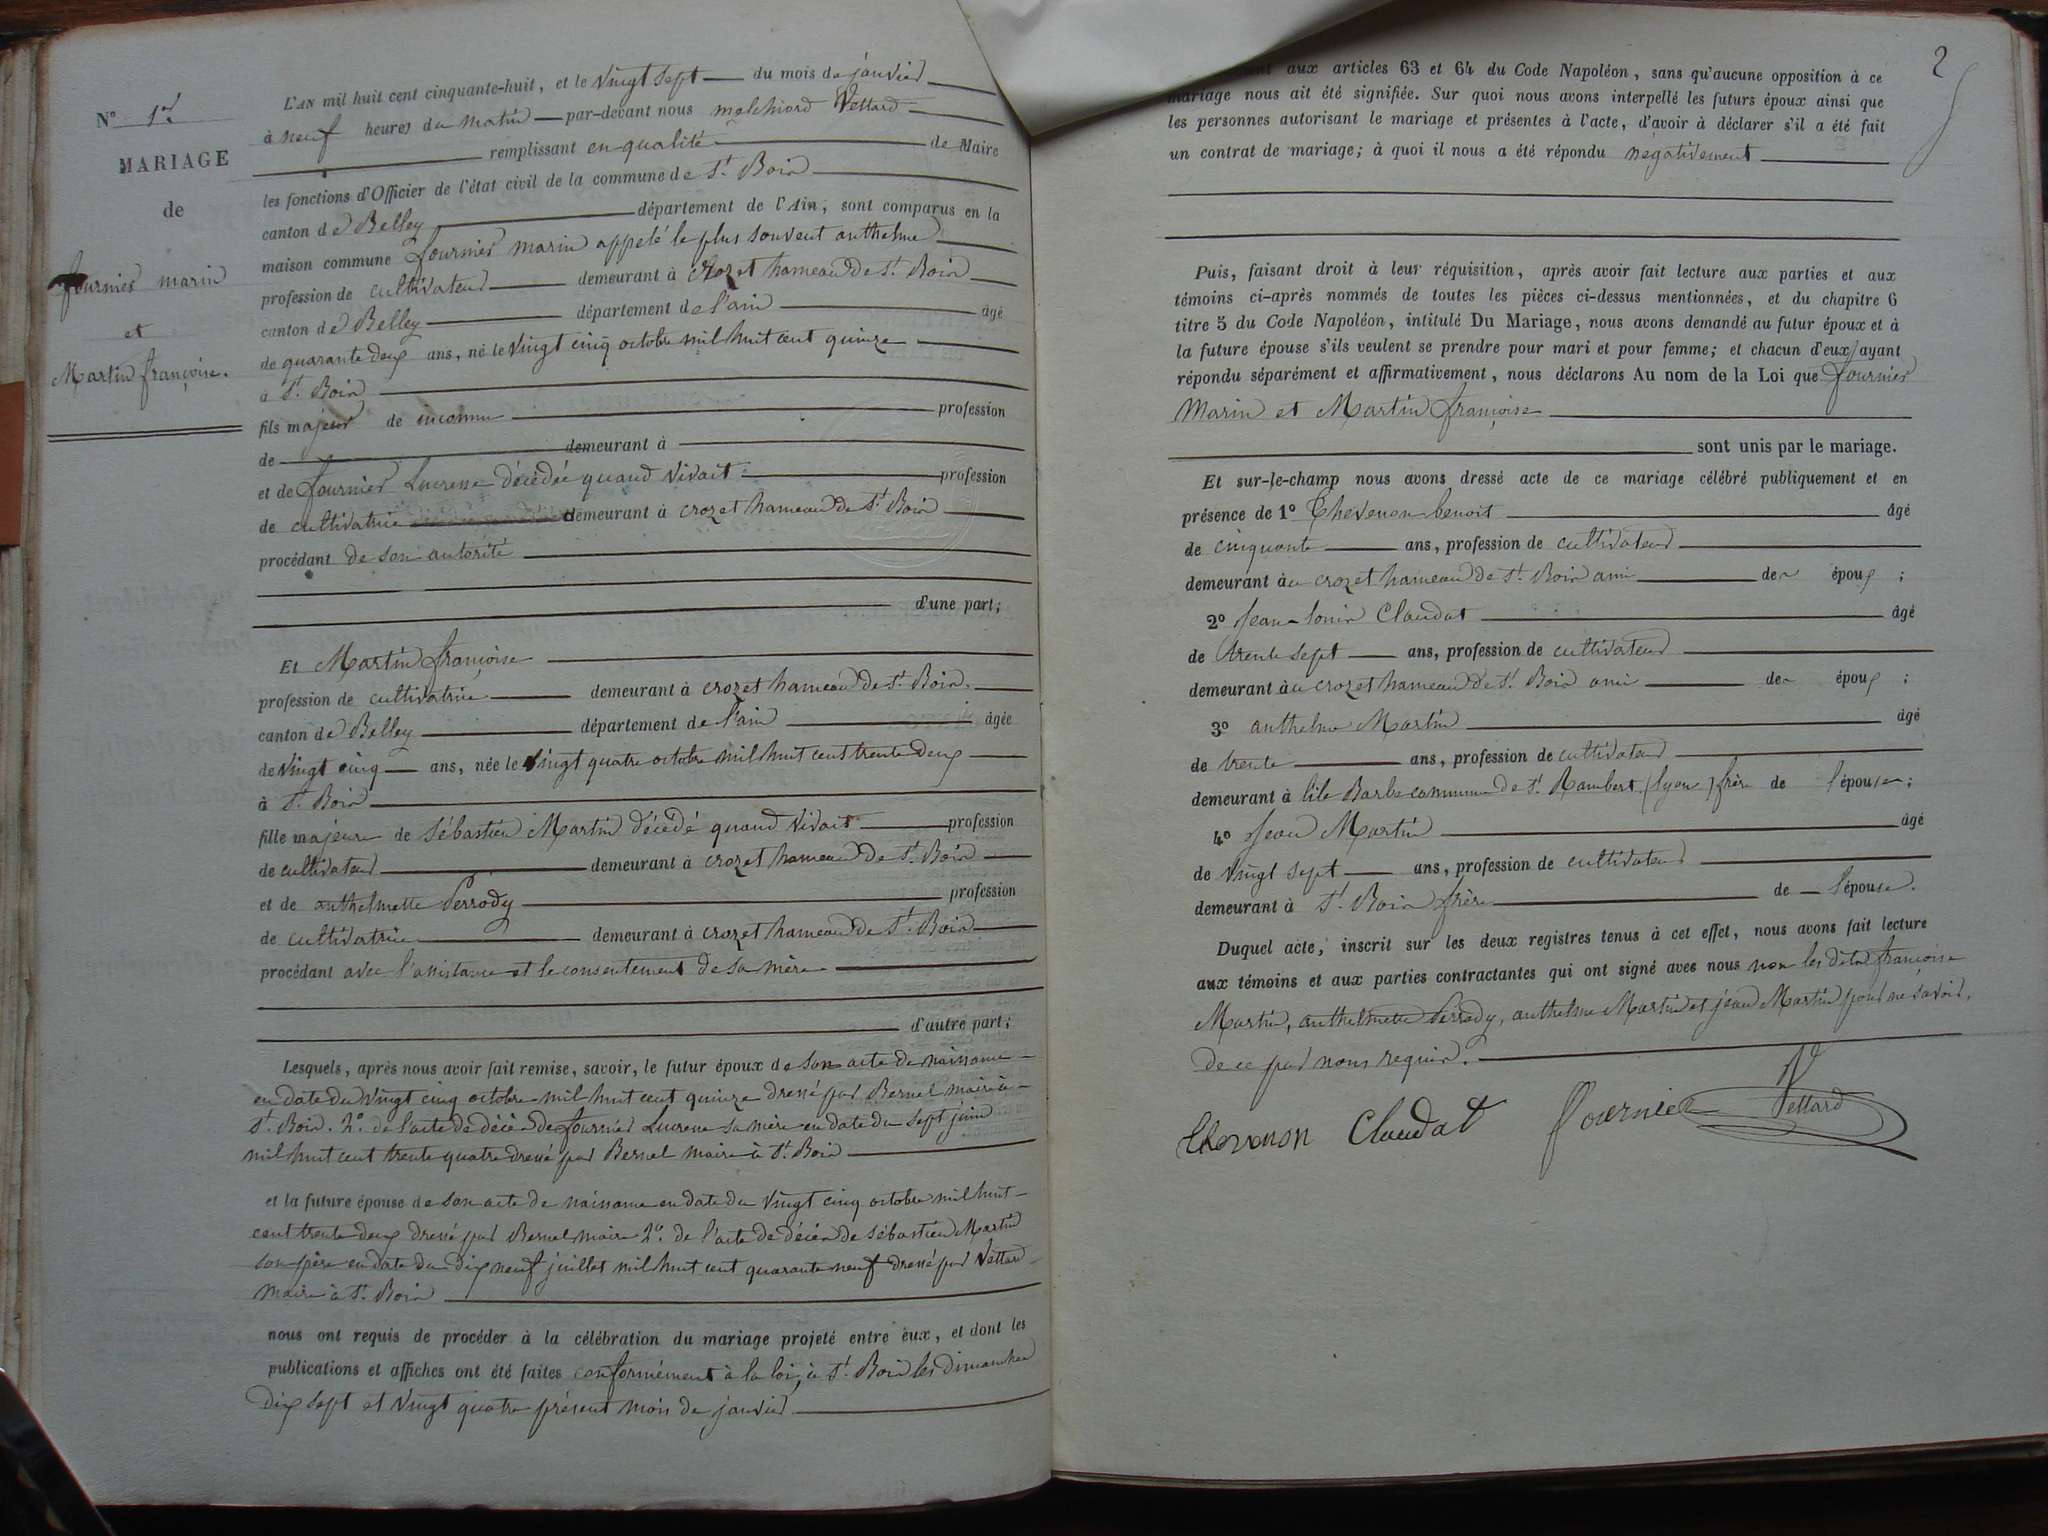 N° 1er
MARIAGE
de
fournier marin
et
Martin françoise.
L'AN mil huit cent cinquante-huit, et le vingt sept du mois de janvier
à neuf heures du matin par-devant nous melchiord Vettard
remplissant en qualité de Maire
les fonctions d'Officier de l'état civil de la commune de St. Bois
canton de Belley département de l'Ain, sont comparus en la
maison commune fournier marin appelé le plus souvent anthelme
profession de cultivateur demeurant à crozet hameau de St. Bois
canton de Belley département de l'ain âgé
de quarante deux ans, né le vingt cinq octobre mil huit cent quinze
à St. Bois
fils majeur de inconnu profession
de demeurant à
et de fournier Lucresse décédée quand vivait profession
de cultivatrice demeurant à crozet hameau de St. Bois
procédant de son autorité
d'une part;
Et Martin françoise
profession de cultivatrice demeurant à crozet hameau de St. Bois.
canton de Belley département de l'ain âgée
de vingt cinq ans, née le vingt quatre octobre mil huit cent trente deux
à St. Bois
fille majeure de sébastien Martin décédé quand vivait profession
de cultivateur demeurant à crozet hameau de St. Bois
et de anthelmette Perrody profession
de cultivatrice demeurant à crozet hameau de St. Bois
procédant avec l'assistance et le consentement de sa mère
d'autre part;
Lesquels, après nous avoir fait remise, savoir, le futur époux de son acte de naissance
en date du vingt cinq octobre mil huit cent quinze dressé par Bernel maire à
St. Bois. 2° de l'acte de décès de fournier Lucresse sa mère en date du sept juin
mil huit cent trente quatre dressé par Bernel maire à St. Bois
et la future épouse de son acte de naissance en date du vingt cinq octobre mil huit
cent trente deux dressé par Bernel maire 2° de l'acte de décès de sébastien Martin
son père en date du dix neuf juillet mil huit cent quarante neuf dressé par Vettard
maire à St. Bois
nous ont requis de procéder à la célébration du mariage projeté entre eux, et dont les
publications et affiches ont été faites conformément à la loi, à St. Bois les dimanches
dix sept et vingt quatre présent mois de janvier
2
aux articles 63 et 64 du Code Napoléon, sans qu'aucune opposition à ce
mariage nous ait été signifiée. Sur quoi nous avons interpellé les futurs époux ainsi que
les personnes autorisant le mariage et présentes à l'acte, d'avoir à déclarer s'il a été fait
un contrat de mariage; à quoi il nous a été répondu negativement
Puis, faisant droit à leur réquisition, après avoir fait lecture aux parties et aux
témoins ci-après nommés de toutes les pièces ci-dessus mentionnées, et du chapitre 6
titre 5 du Code Napoléon, intitulé Du Mariage, nous avons demandé au futur époux et à
la future épouse s'ils veulent se prendre pour mari et pour femme; et chacun d'eux ayant
répondu séparément et affirmativement, nous déclarons Au nom de la Loi que fournier
Marin et Martin françoise
sont unis par le mariage.
Et sur-le-champ nous avons dressé acte de ce mariage célébré publiquement et en
présence de 1° Thevenon benoit âgé
de cinquante ans, profession de cultivateur
demeurant à crozet hameau de St. Bois ami des époux ;
2° Jean-louis Claudat âgé
de trente sept ans, profession de cultivateur
demeurant à crozet hameau de St. Bois ami des époux ;
3° anthelme Martin âgé
de trente ans, profession de cultivateur
demeurant à l'ile Barbe commune de St. Rambert (lyon) frère de l'épouse;
4° Jean Martin âgé
de vingt sept ans, profession de cultivateur
demeurant à St. Bois frère de l'épouse.
Duquel acte, inscrit sur les deux registres tenus à cet effet, nous avons fait lecture
aux témoins et aux parties contractantes qui ont signé avec nous non les dites françoise
Martin, anthelmette Perrody, anthelme Martin et jean Martin pour ne savoir,
de ce par nous requis.
thevenon Claudat fournier Vettard